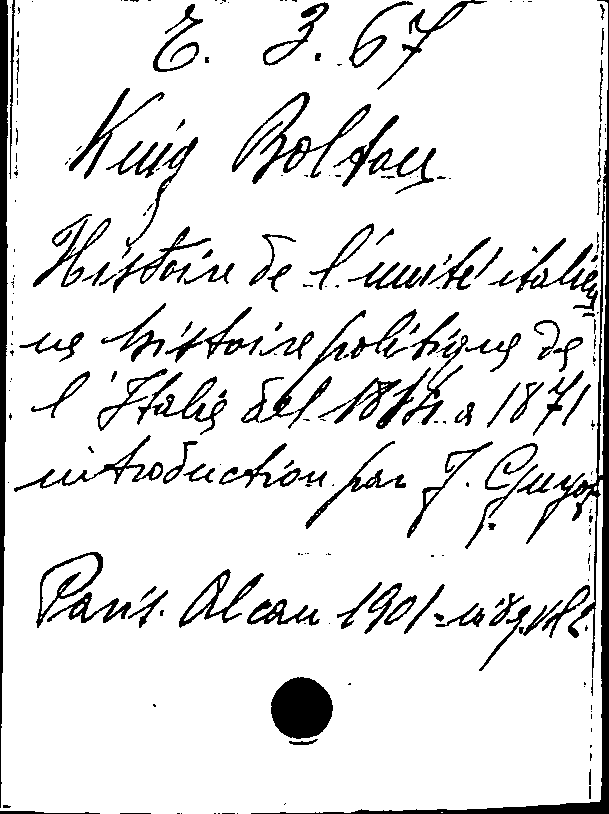 E. 3. 67
King Bolton
Histoire de l'unité italien
ne histoire politique de
l'Italie del 1814 a 1871
introduction par J. Guyot
Paris. Alcan 1901 = in 8°